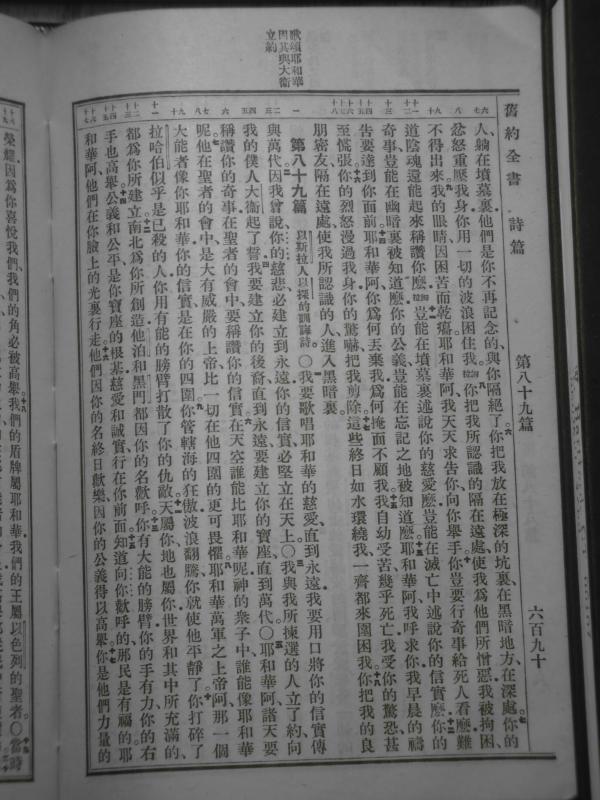 舊約全書 詩篇 第八十九篇 六百九十
人躺在墳墓裏他們是你不再記念的與你隔絕了你把我放在極深的坑裏在黑暗地方在深處你的
忿怒重壓我身你用一切的波浪困住我細拉你把我所認識的隔在遠處使我爲他們所憎惡我被拘困
不得出來我的眼睛因困苦而乾癟耶和華阿我天天求告你向你舉手你豈要行奇事給死人看麼難
道陰魂還能起來稱讚你麼細拉豈能在墳墓裏述說你的慈愛麼豈能在滅亡中述說你的信實麼你的
奇事豈能在幽暗裏被知道麼你的公義豈能在忘記之地被知道麼耶和華阿我呼求你我早晨的禱
告要達到你面前耶和華阿你爲何丟棄我爲何掩面不顧我我自幼受苦幾乎死亡我受你的驚恐甚
至慌張你的烈怒漫過我身你的驚嚇把我剪除這些終日如水環繞我一齊都來圍困我你把我的良
朋密友隔在遠處使我所認識的人進入黑暗裏
第八十九篇 以斯拉人以探的訓誨詩。○我要歌唱耶和華的慈愛直到永遠我要用口將你的信實傳
與萬代因我曾說你的慈悲必建立到永遠你的信實必堅立在天上○我與我所揀選的人立了約向
我的僕人大衛起了誓我要建立你的後裔直到永遠要建立你的寶座直到萬代○耶和華阿諸天要
稱讚你的奇事在聖者的會中要稱讚你的信實在天空誰能比耶和華呢神的衆子中誰能像耶和華
呢他在聖者的會中是大有威嚴的上帝比一切在他四圍的更可畏懼耶和華萬軍之上帝阿那一個
大能者像你耶和華你的信實是在你的四圍你管轄海的狂傲波浪翻騰你就使他平靜了你打碎了
拉哈伯似乎是已殺的人你用有能的膀臂打散了你的仇敵天屬你地也屬你世界和其中所充滿的
都爲你所建立南北爲你所創造他泊和黑門都因你的名歡呼你有大能的膀臂你的手有力你的右
手也高舉公義和公平是你寶座的根基慈愛和誠實行在你前面知道向你歡呼的那民是有福的耶
和華阿他們在你臉上的光裏行走他們因你的名終日歡樂因你的公義得以高舉你是他們力量的
歌頌耶和華
因其與大衛
立約
榮耀因爲你喜悅我們我們的角必被高舉我們的盾牌屬耶和華我們的王屬以色列的聖者○當時